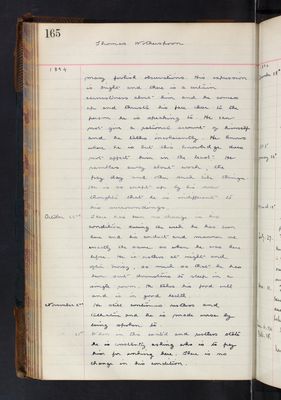 165
Thomas Wotherspoon
1894
many foolish observations. His expression
is bright and there is a certain
about him and he comes
up and thrusts his face close to the
person he is speaking to. He can
not give a rational account of himself
and he talks incoherently. He knows
where he is but this knowledge does
not affect him in the least. He
rambles away about work, the
day and other such like things.
He is so wrapt up by his own
thoughts that he is indifferent to
his surroundings.
October 22nd There has been no change in his
condition during the week he has been
here and his conduct and manner are
exactly the same as when he was here
before. He is restless at night and
noisy, so much so that he has
been sent downstairs to sleep in a
single room. He takes his food well
and is in good health.
November 2nd He still continues restless and
talkative and he is made worse by
being spoken to.
When in the ward and restless state
he is constantly asking who is to pay
him for working here. There is no
change in his condition.